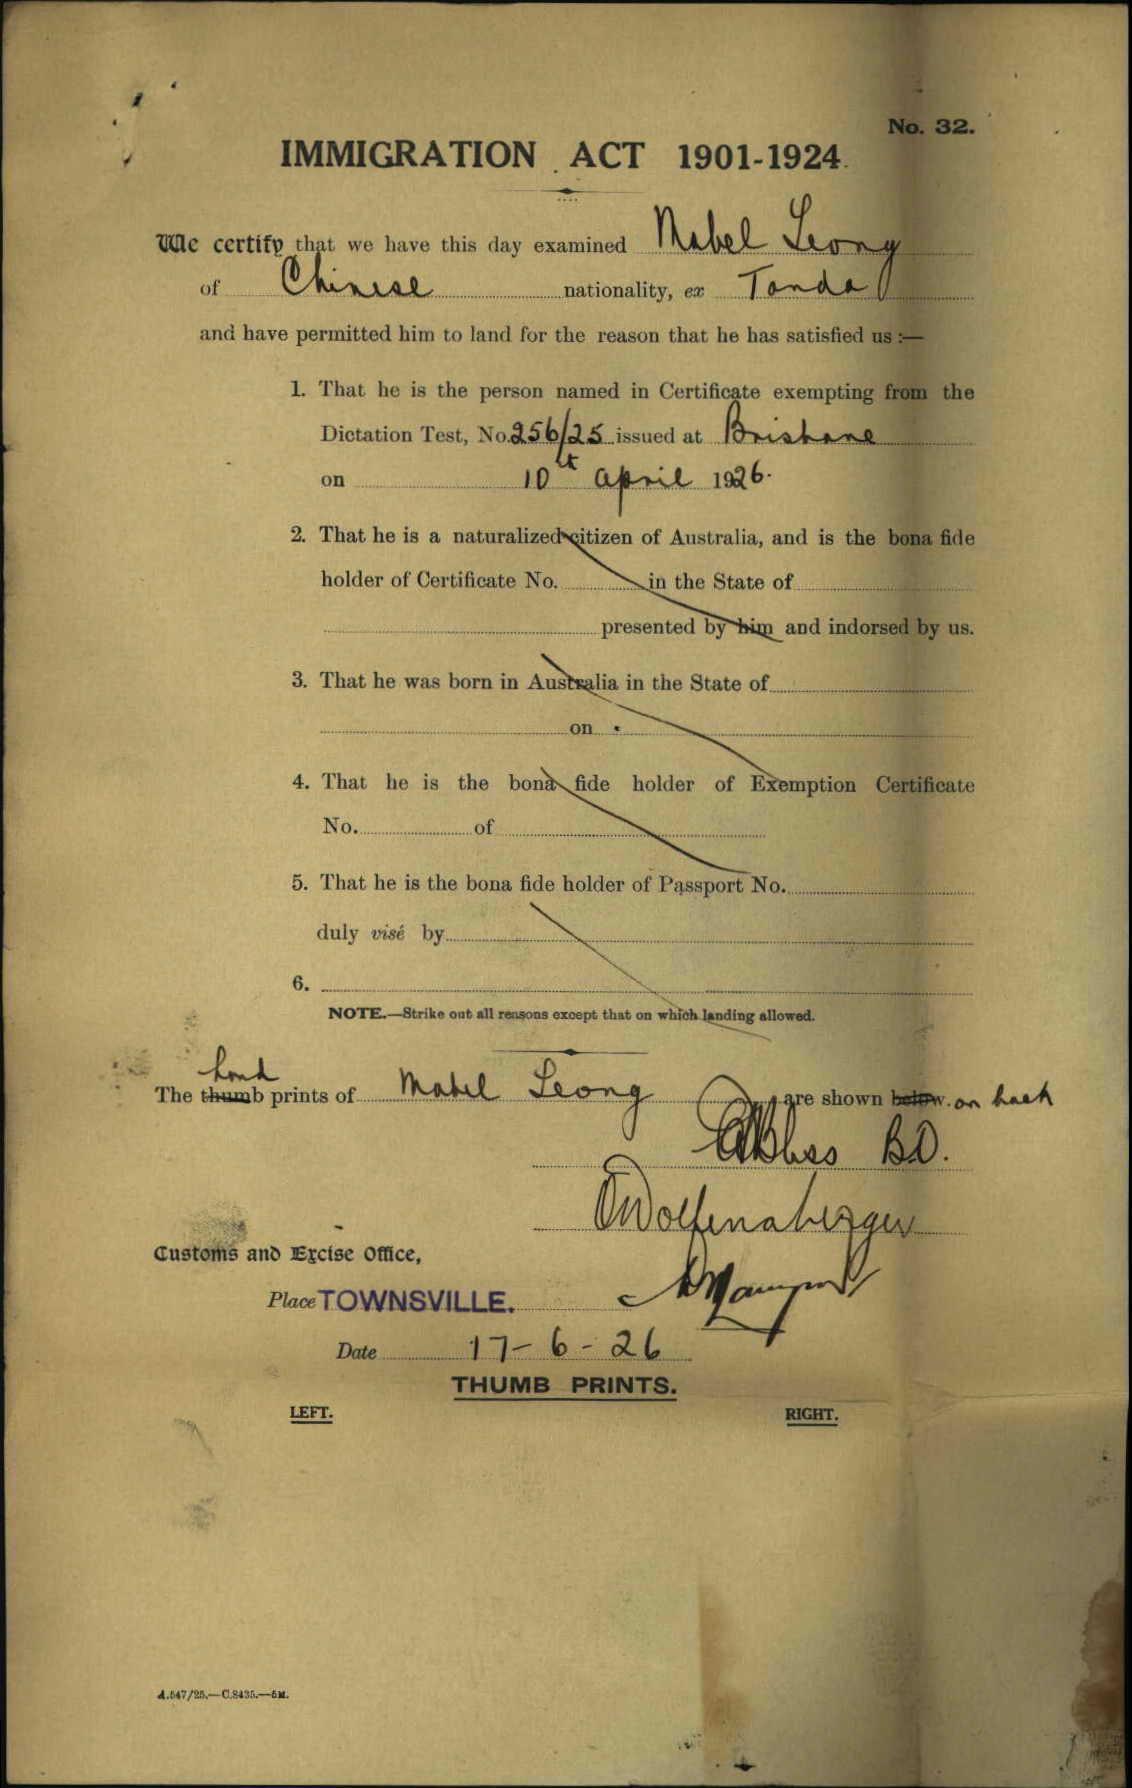 No. 32.
IMMIGRATION ACT 1901-1924.
We certify that we have this day examined Mabel Leong
of Chinese nationality, ex Tanda
and have permitted him to land for the reason that he has satisfied us :—
1. That he is the person named in Certificate exempting from the
Dictation Test, No. 256/25 issued at Brisbane
on 10th April 1926.
2. That he is a naturalized citizen of Australia, and is the bona fide
holder of Certificate No. in the State of
presented by him and indorsed by us.
3. That he was born in Australia in the State of
on
4. That he is the bona fide holder of Exemption Certificate
No. of
5. That he is the bona fide holder of Passport No.
duly visé by
6.
NOTE.—Strike out all reasons except that on which landing allowed.
hand
The thumb prints of Mabel Leong are shown below. on back
B.O.
Wolfensberger
Customs and Excise Office,
Place TOWNSVILLE.
Date 17-6-26
THUMB PRINTS.
LEFT. RIGHT.
A.547/25.—C.8435.—5M.